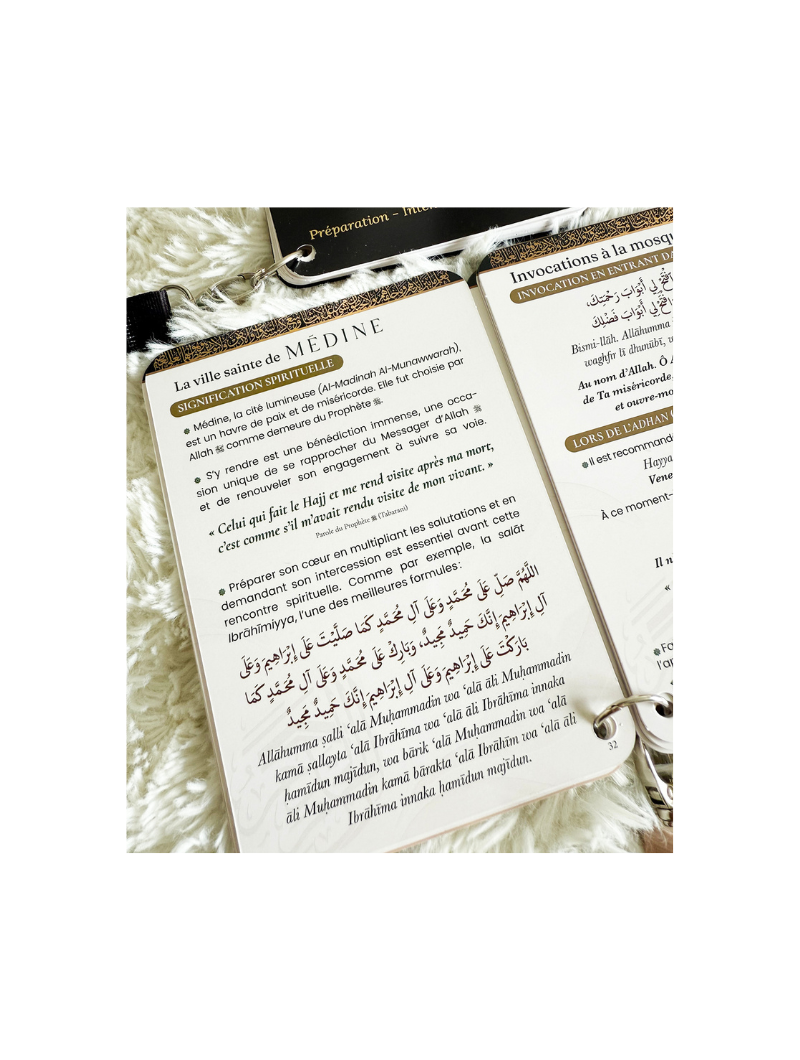 Préparation –
La ville sainte de MÉDINE
SIGNIFICATION SPIRITUELLE
Médine, la cité lumineuse (Al-Madînah Al-Munawwarah),
est un havre de paix et de miséricorde. Elle fut choisie par
Allah ﷻ comme demeure du Prophète ﷺ.
S’y rendre est une bénédiction immense, une occa-
sion unique de se rapprocher du Messager d’Allah ﷺ
et de renouveler son engagement à suivre sa voie.
« Celui qui fait le Hajj et me rend visite après ma mort,
c’est comme s’il m’avait rendu visite de mon vivant. »
Parole du Prophète ﷺ (Tabarani)
Préparer son cœur en multipliant les salutations et en
demandant son intercession est essentiel avant cette
rencontre spirituelle. Comme par exemple, la salât
Ibrâhîmiyya, l’une des meilleures formules:
اللَّهُمَّ صَلِّ عَلَى مُحَمَّدٍ وَعَلَى آلِ مُحَمَّدٍ كَمَا صَلَّيْتَ عَلَى إِبْرَاهِيمَ وَعَلَى
آلِ إِبْرَاهِيمَ إِنَّكَ حَمِيدٌ مَجِيدٌ، وَبَارِكْ عَلَى مُحَمَّدٍ وَعَلَى آلِ مُحَمَّدٍ كَمَا
بَارَكْتَ عَلَى إِبْرَاهِيمَ وَعَلَى آلِ إِبْرَاهِيمَ إِنَّكَ حَمِيدٌ مَجِيدٌ
Allāhumma ṣalli ‘alā Muḥammadin wa ‘alā āli Muḥammadin
kamā ṣallayta ‘alā Ibrāhīma wa ‘alā āli Ibrāhīma innaka
ḥamīdun majīdun, wa bārik ‘alā Muḥammadin wa ‘alā
āli Muḥammadin kamā bārakta ‘alā Ibrāhīm wa ‘alā āli
Ibrāhīma innaka ḥamīdun majīdun.
32
Invocations à la
INVOCATION EN ENTRANT
لِي أَبْوَابَ رَحْمَتِكَ،
لِي أَبْوَابَ فَضْلِكَ
Bismi-llāh. Allāhumma
waghfir lī dhunūbī,
Au nom d’Allah. Ô
de Ta miséricorde,
et
LORS DE L’ADHAN
Il est
Hayya
À ce
Il
«